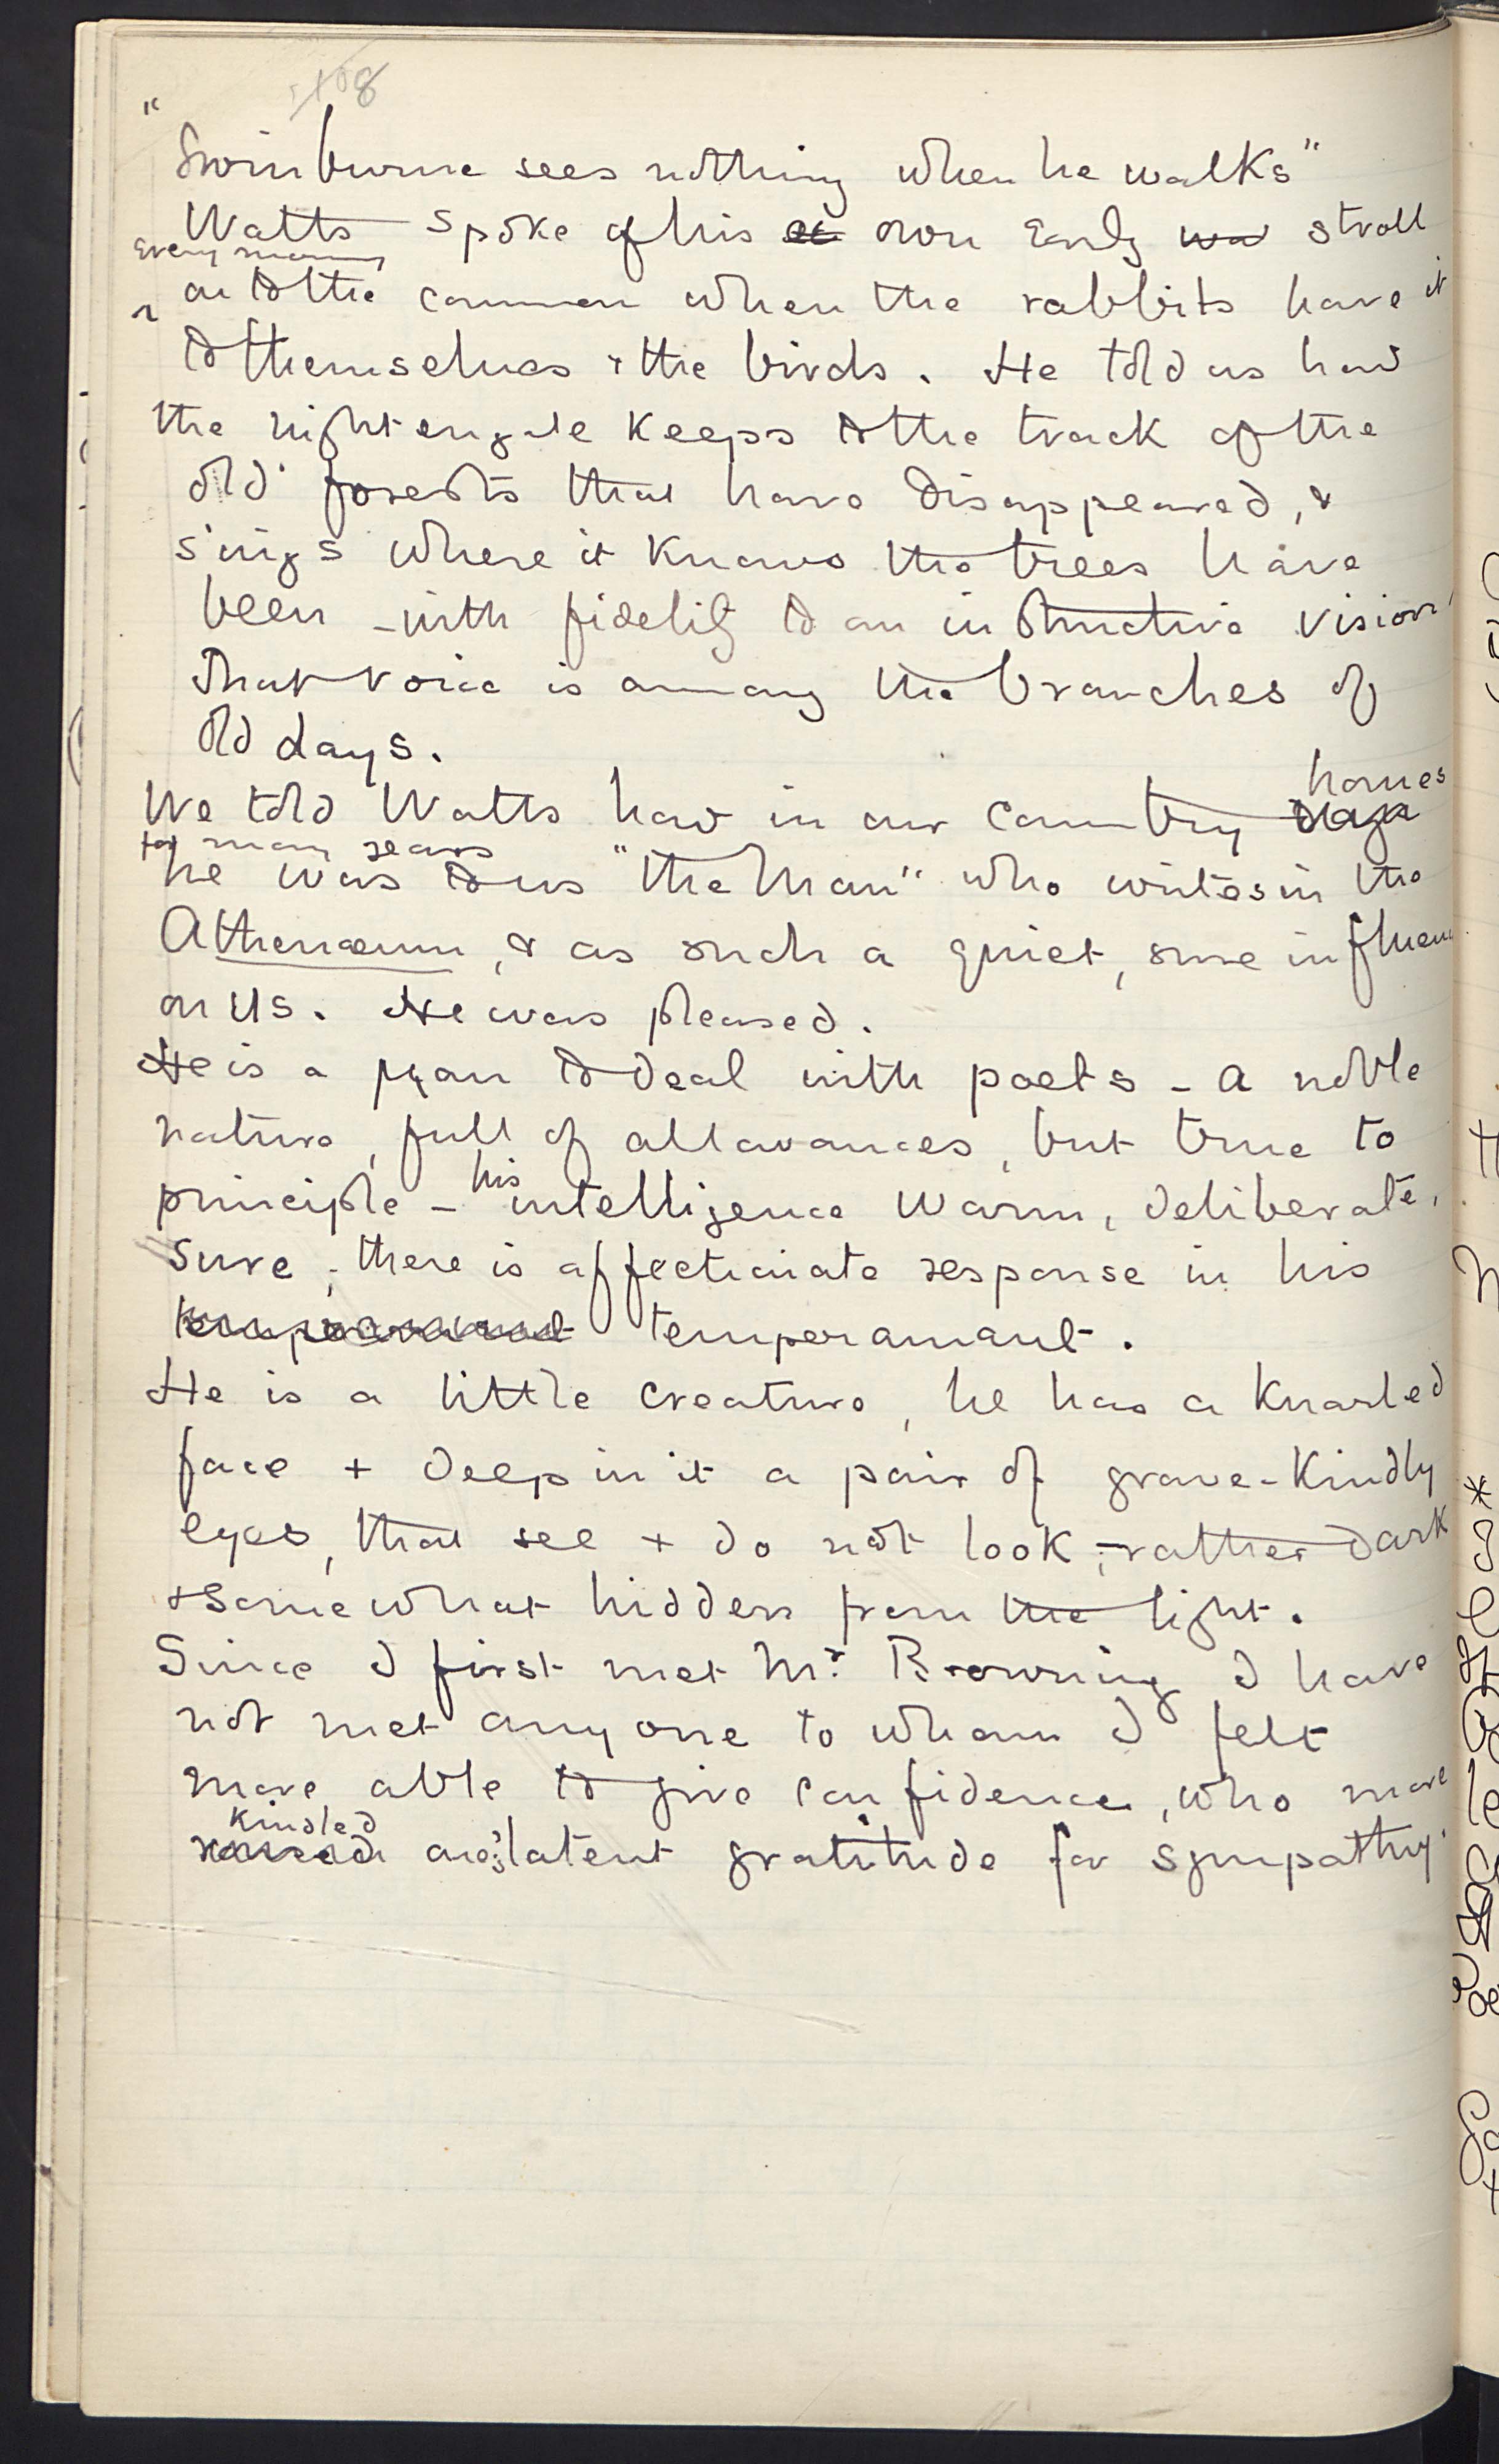 108
"Swinburne sees nothing when he walks"
Watts spoke of his own early stroll
every morning
on to the common when the rabbits have it
to themselves & the birds. He told us how
the nightengale keeps to the track of the
old forests that have disappeared, &
sings where it knows the trees have
been – with fidelity to an instinctive vision.
That voice is among the branches of
old days.
We told Watts how in our country days homes
for many years
he was to us "the Man" who writes in the
Athenæum, & as such a quiet, sure influence
on us. He was pleased.
He is a man to deal with poets – a noble
nature, full of allowances, but true to
principle – his intelligence warm, deliberate,
sure; there is affectionate response in his
temperament temperament.
He is a little creature, he has a knarled
face + deep in it a pair of grave-kindly
eyes, that see + do not look, – rather dark
& somewhat hidden from the light.
Since I first met Mr. Browning I have
not met any one to whom I felt
more able to give confidence, who more
kindled
one's latent gratitude for sympathy.